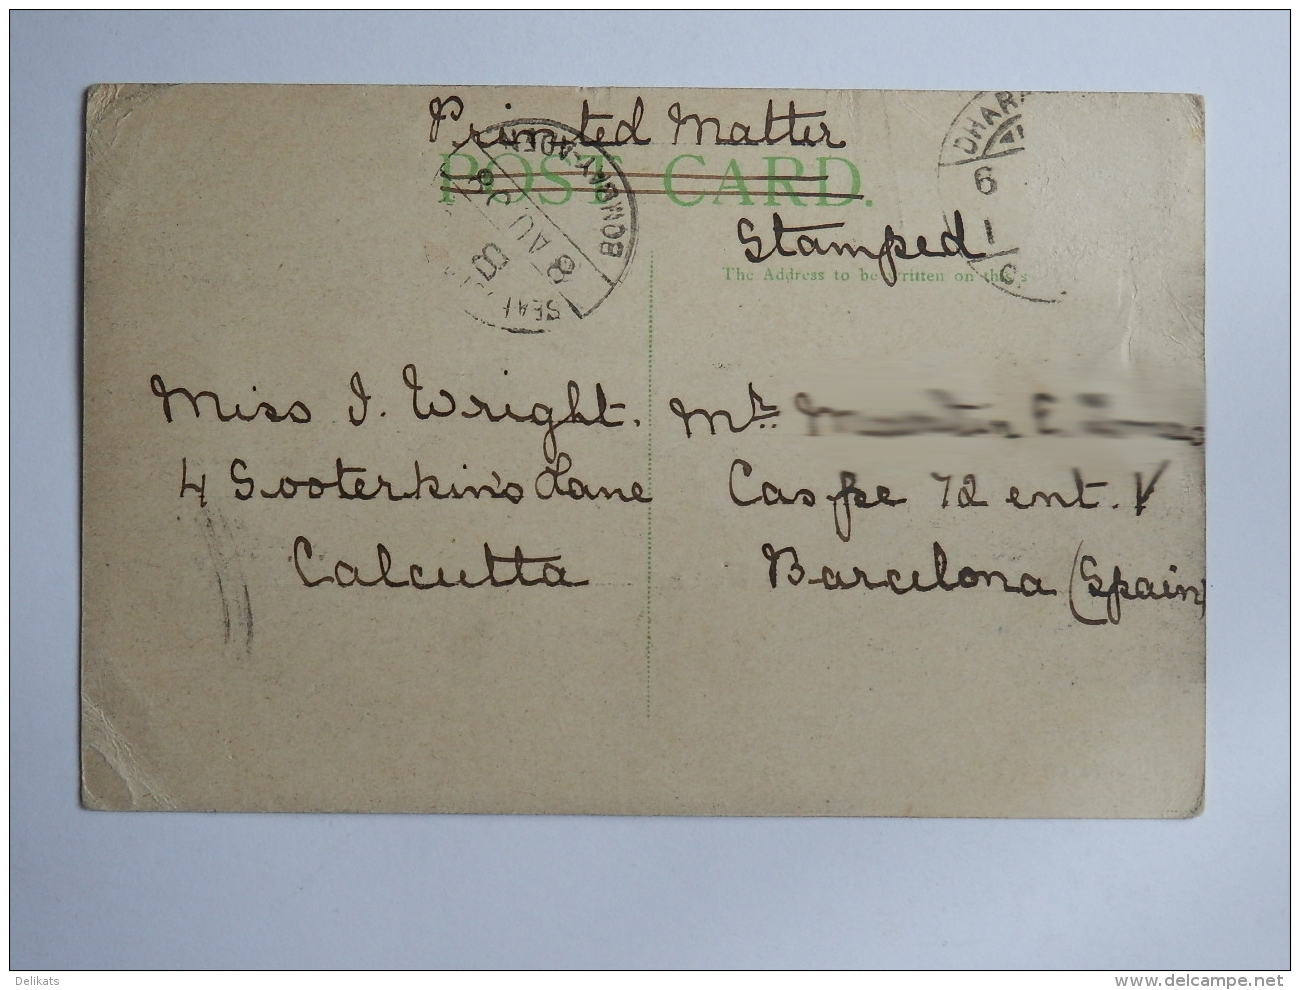 Printed Matter
POST CARD.
Stamped
The Address to be written on this
BOMBAY-ADEN
8 AU
SEA
DHAR
6
Miss I. Wright.
4 Sooterkin's Lane
Calcutta
Mr.
Caspe 72 ent. V
Barcelona (Spain)
Delikats
www.delcampe.net